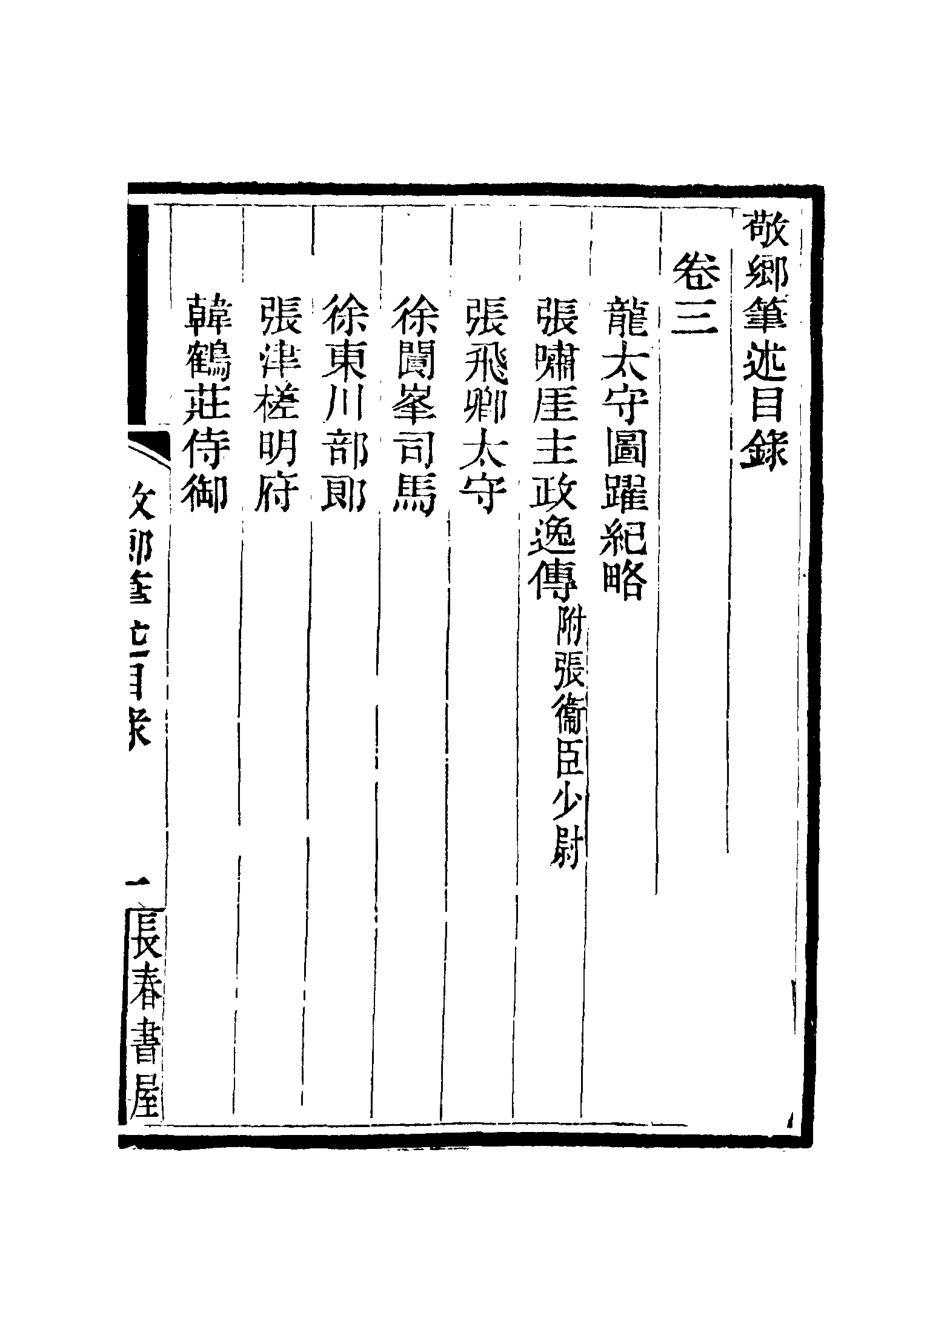 敬鄉筆述目錄
卷三
龍太守圖躍紀略
張嘯厓主政逸傳附張衞臣少尉
張飛卿太守
徐閬峯司馬
徐東川部郎
張津槎明府
韓鶴莊侍御
敬鄉筆述目錄
一
長春書屋